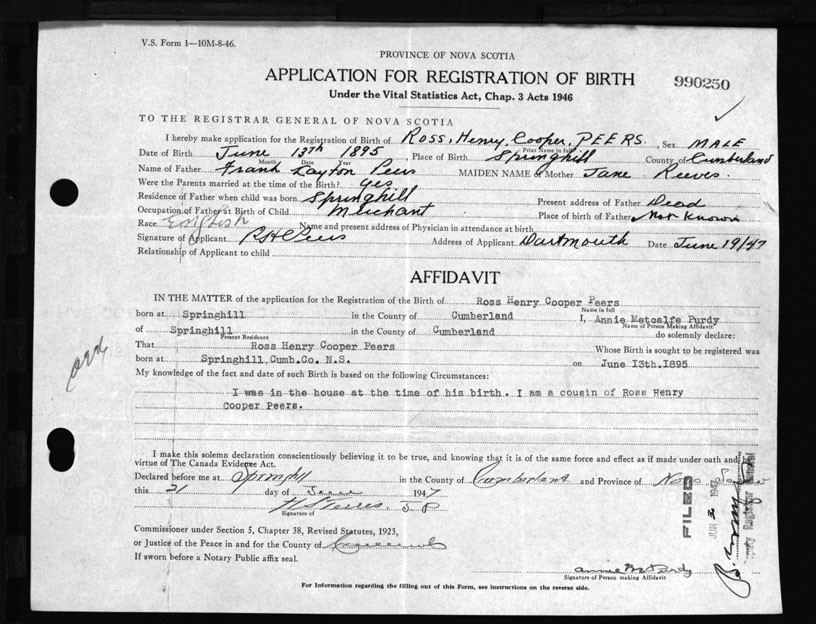 V.S. Form 1—10M-8-46.
PROVINCE OF NOVA SCOTIA
APPLICATION FOR REGISTRATION OF BIRTH
990250
Under the Vital Statistics Act, Chap. 3 Acts 1946
TO THE REGISTRAR GENERAL OF NOVA SCOTIA
I hereby make application for the Registration of Birth of Ross, Henry, Cooper, PEERS. Sex MALE
Print Name in full
Date of Birth June 13th 1895, Place of Birth Springhill County of Cumberland
Month Date Year
Name of Father Frank Layton Peers MAIDEN NAME of Mother Jane Reeves.
Were the Parents married at the time of the Birth? yes
Residence of Father when child was born Springhill Present address of Father Dead
Occupation of Father at Birth of Child Merchant Place of birth of Father Not Known
Race English Name and present address of Physician in attendance at birth
Signature of Applicant R H C Peers Address of Applicant Dartmouth Date June 19/47
Relationship of Applicant to child
AFFIDAVIT
IN THE MATTER of the application for the Registration of the Birth of Ross Henry Cooper Peers
Name in full
born at Springhill in the County of Cumberland I, Annie Metcalfe Purdy
Name of Person Making Affidavit
of Springhill in the County of Cumberland do solemnly declare:
Present Residence
That Ross Henry Cooper Peers Whose Birth is sought to be registered was
born at Springhill Cumb.Co. N.S. on June 13th.1895
My knowledge of the fact and date of such Birth is based on the following Circumstances:
I was in the house at the time of his birth. I am a cousin of Ross Henry
Cooper Peers.
I make this solemn declaration conscientiously believing it to be true, and knowing that it is of the same force and effect as if made under oath and by
virtue of The Canada Evidence Act.
Declared before me at Springhill in the County of Cumberland and Province of Nova Scotia
this 21 day of June 1947
J P
Signature of
Commissioner under Section 5, Chapter 38, Revised Statutes, 1923,
or Justice of the Peace in and for the County of
If sworn before a Notary Public affix seal.
Annie M Purdy
Signature of Person making Affidavit
For Information regarding the filling out of this Form, see instructions on the reverse side.
FILED
Deputy Registrar General